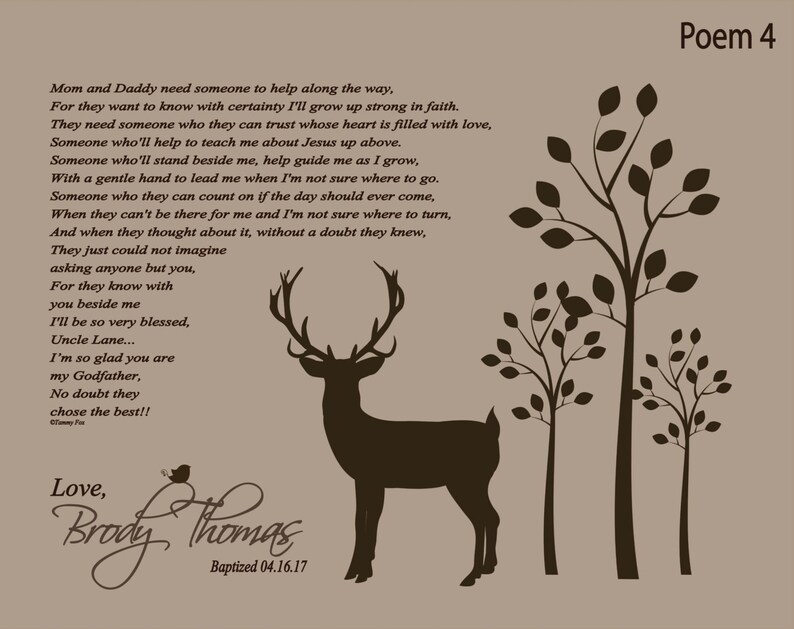 Poem 4
Mom and Daddy need someone to help along the way,
For they want to know with certainty I'll grow up strong in faith.
They need someone who they can trust whose heart is filled with love,
Someone who'll help to teach me about Jesus up above.
Someone who'll stand beside me, help guide me as I grow,
With a gentle hand to lead me when I'm not sure where to go.
Someone who they can count on if the day should ever come,
When they can't be there for me and I'm not sure where to turn,
And when they thought about it, without a doubt they knew,
They just could not imagine
asking anyone but you,
For they know with
you beside me
I'll be so very blessed,
Uncle Lane...
I'm so glad you are
my Godfather,
No doubt they
chose the best!!
©Tammy Fox
Love,
Brody Thomas
Baptized 04.16.17